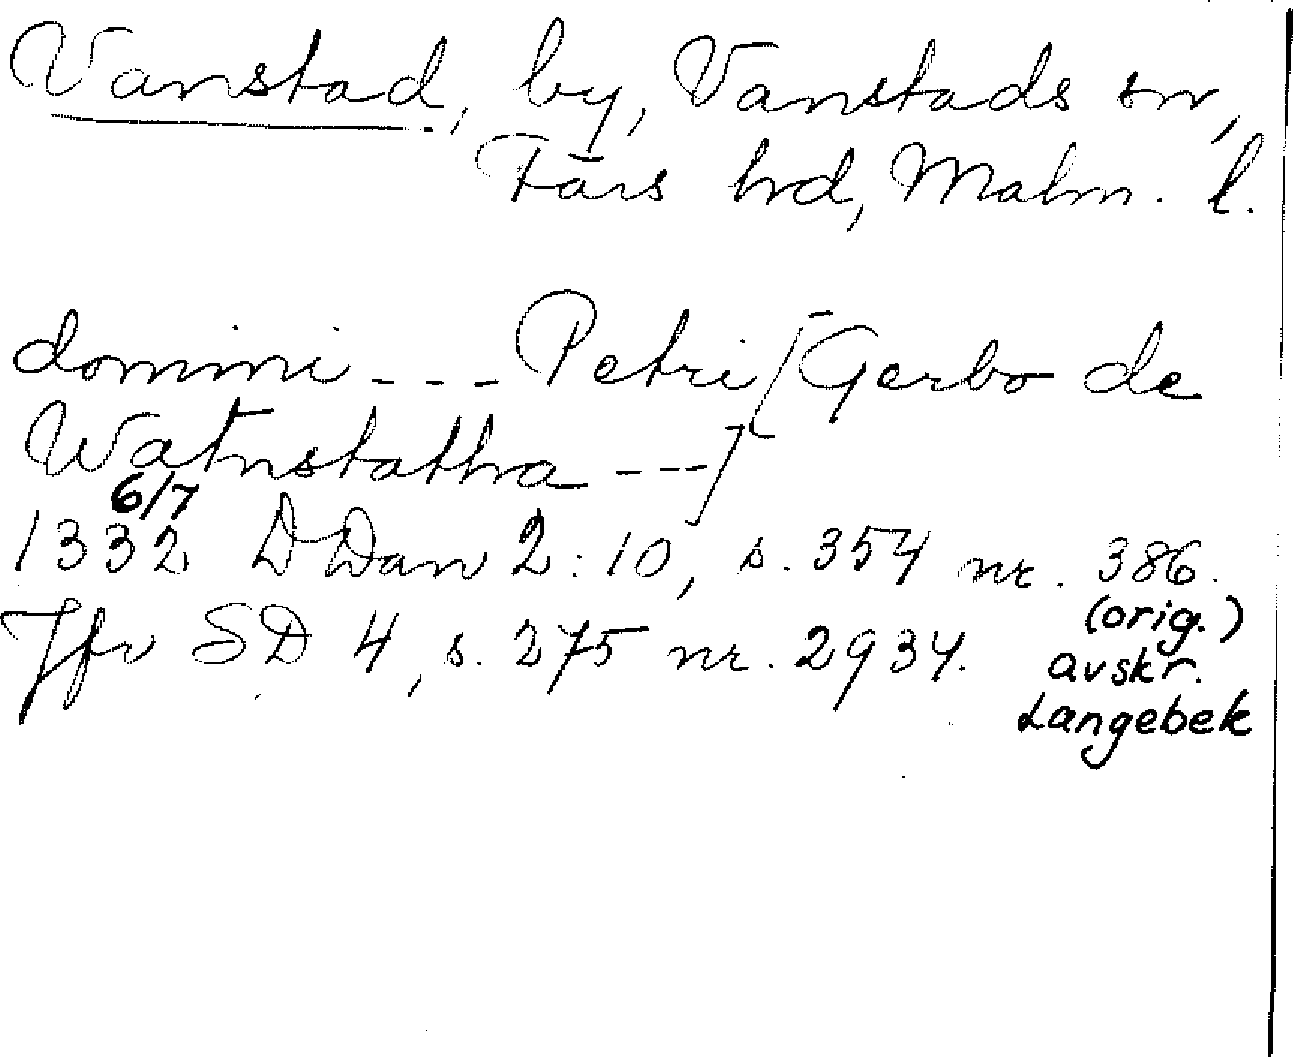 Vanstad, by, Vanstads sn,
Färs hrd, Malm. l.
domini --- Petri [Gerbo de
Watnstatha ---]
6/7
1332 DDan 2:10, s. 354 nr. 386.
(orig.)
Jfr SD 4, s. 275 nr. 2934.
avskr.
Langebek